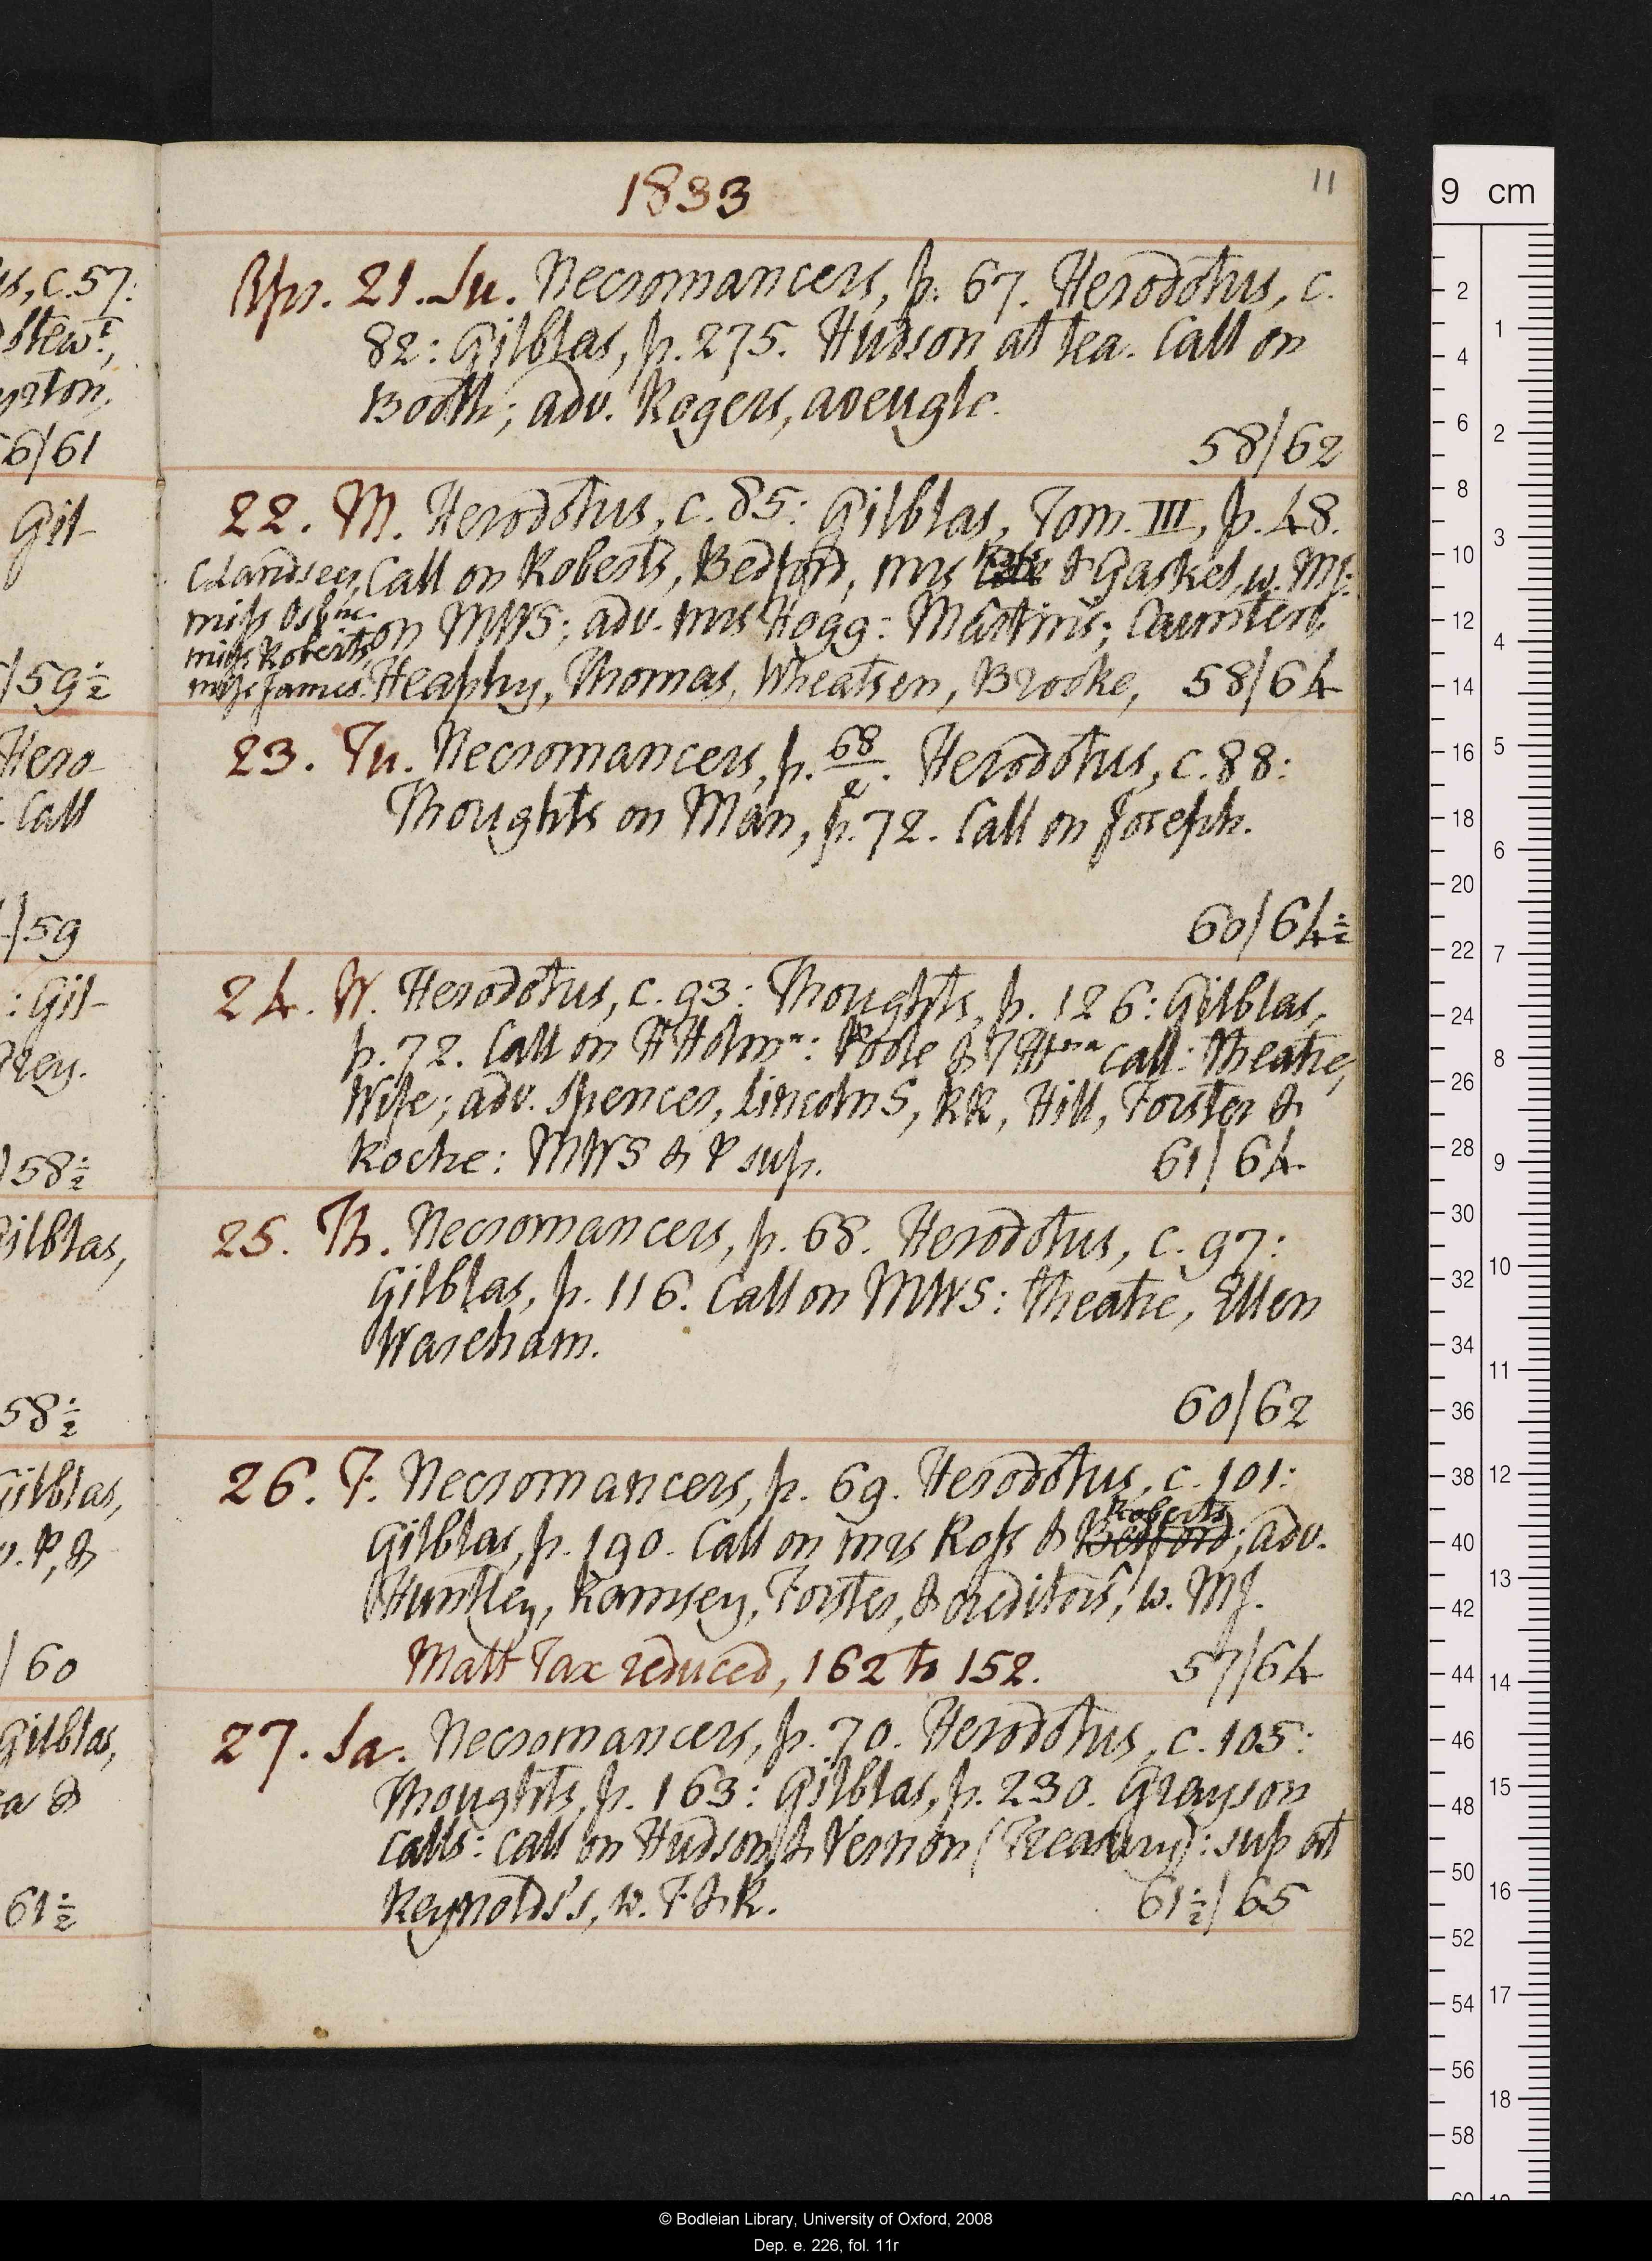 1833
11
Apr. 21. Su. Necromancers, p. 67. Herodotus, c.
82: Gilblas, p. 275. Hudson at tea. Call on
Booth; adv. Rogers, aveugle.
58/62
22. M. Herodotus, c. 85: Gilblas, Tom. III, p. 48.
CLandseer, Call on Roberts, Bedford, mrs & Gaskel, w. MJ:
miss Osbne on MWS; adv. mrs Hogg: Martins; Caunter,
miss Roberts,
miss James. Heaphy, Thomas, Wheatsen, Brooke, 58/64
23. Tu. Necromancers, p. 68/2. Herodotus, c. 88:
Thoughts on Man, p. 72. Call on Joseph.
60/64½
24. W. Herodotus, c. 93: Thoughts, p. 126: Gilblas,
p. 72. Call on HHolmn: Poole & call: Theatre,
Wife; adv. Spencer, LincolnS, RR, Hill, Forster &
Roche: MWS & P sup. 61/64
25. Th. Necromancers, p. 68. Herodotus, c. 97:
Gilblas, p. 116. Call on MWS: Theatre, Ellen
Wareham.
60/62
26. F. Necromancers, p. 69. Herodotus, c. 101:
Roberts
Gilblas, p. 190. Call on mrs Ross & Bedford; adv.
Huntley, Ramsey, Forster, & creditors, w. MJ.
Malt Tax reduced, 162 to 152. 57/64
27. Sa. Necromancers, p. 70. Herodotus, c. 105:
Thoughts, p. 163: Gilblas, p. 230. Grayson
calls: call on Hudson, & Vernon (Treasury): sup at
Reynolds's, w. F & R. 61½/65
s, c. 57:
Stewt,
yrton,
56/61
Gil-
/59½
Hero-
Call
/59
: Gil-
rey.
58½
Gilblas,
58½
Gilblas,
. P, &
/60
Gilblas,
a &
61½
9 cm
2
4
6
8
10
12
14
16
18
20
22
24
26
28
30
32
34
36
38
40
42
44
46
48
50
52
54
56
58
60
1
2
3
4
5
6
7
8
9
10
11
12
13
14
15
16
17
18
19
© Bodleian Library, University of Oxford, 2008
Dep. e. 226, fol. 11r